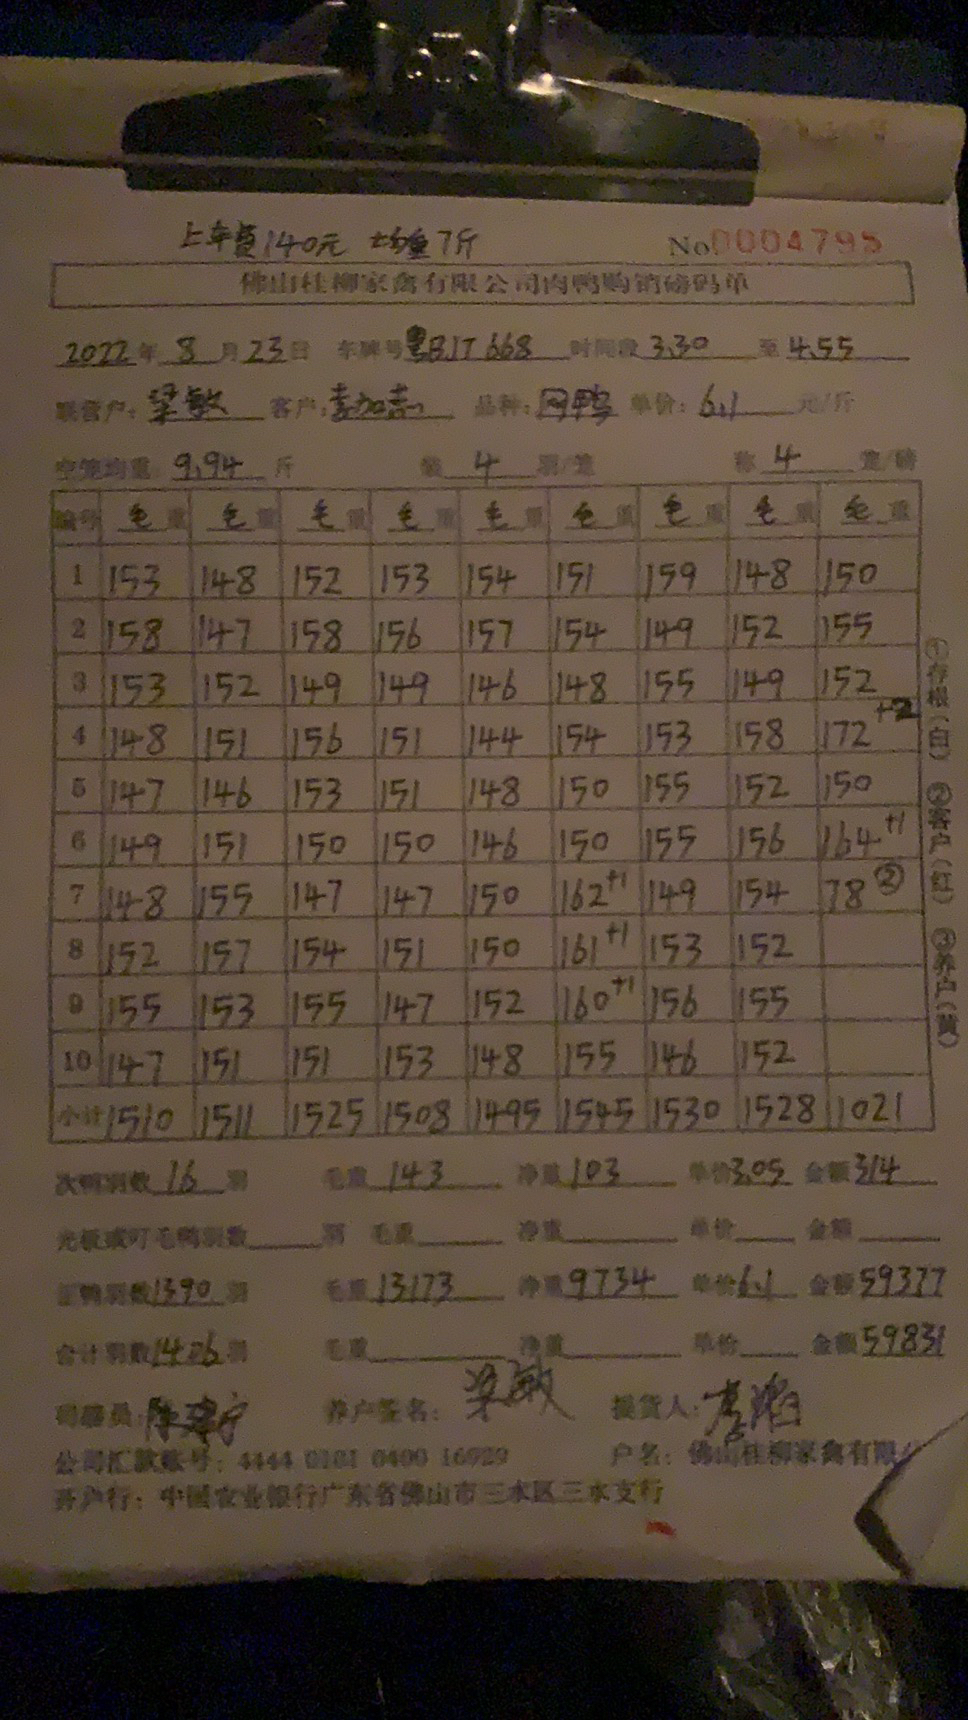 上车费140元 均重7斤 No0004795
佛山桂柳家禽有限公司肉鸭购销磅码单
2022年8月23日 车牌号粤BJT668 时间段3.30至4.55
联营户:梁敏 客户:李加志 品种: 单价:6.1元/斤
空笼均重:9.94斤 装4羽/笼 称4笼/磅
编号 毛重 毛重 毛重 毛重 毛重 毛重 毛重 毛重 毛重
1 153 148 152 153 154 151 159 148 150
2 158 147 158 156 157 154 149 152 155
3 153 152 149 149 146 148 155 149 152
4 148 151 156 151 144 154 153 158 172+2
5 147 146 153 151 148 150 155 152 150
6 149 151 150 150 146 150 155 156 164+1
7 148 155 147 147 150 162+1 149 154 78②
8 152 157 154 151 150 161+1 153 152
9 155 153 155 147 152 160+1 156 155
10 147 151 151 153 148 155 146 152
小计 1510 1511 1525 1508 1495 1545 1530 1528 1021
①存根(白) ②客户(红) ③养户(黄)
次鸭羽数16羽 毛重143 净重103 单价3.05 金额314
光板或叮毛鸭羽数 羽 毛重 净重 单价 金额
正鸭羽数1390羽 毛重13173 净重9734 单价6.1 金额59377
合计羽数1426羽 毛重 净重 单价 金额59831
司磅员: 养户签名:梁敏 提货人:
公司汇款账号:4444 0101 0400 16929 户名:佛山桂柳家禽有限
开户行:中国农业银行广东省佛山市三水区三水支行